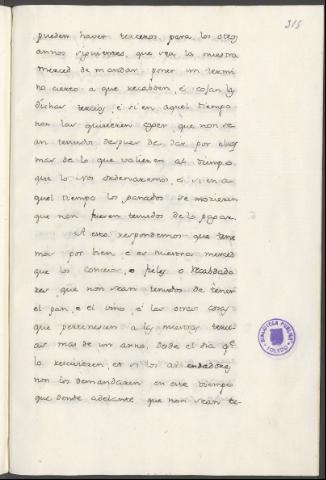 315
pueden haver terceros, para los otros
annos siguientes, que sea la nuestra
merced de mandar poner un termi
no cierto a que recabden, é cojan las
dichas tercias, é si en aquel tiempo
non las quisieren coger, que non se-
an tenudos despues de dar por ellas
mas de lo que valieren al tiempo
que lo Nos ordenaremos, é si en a-
quel tiempo los ganados se morieren
que non fuesen tenudos de lo pagar.
A esto respondemos que tene
mos por bien e es nuestra merced
que los concejos, o fieles, o recabdado
res que non sean tenudos de tener
el pan, e el vino, é las otras cosas
que pertenescen a las nuestras terci-
as mas de un anno, desde el dia qe.
lo rescivieren, es si los arrendadores
non los demandaren en este tiempo
que dende adelante que non sean te-
BIBLIOTECA PUBLICA
TOLEDO